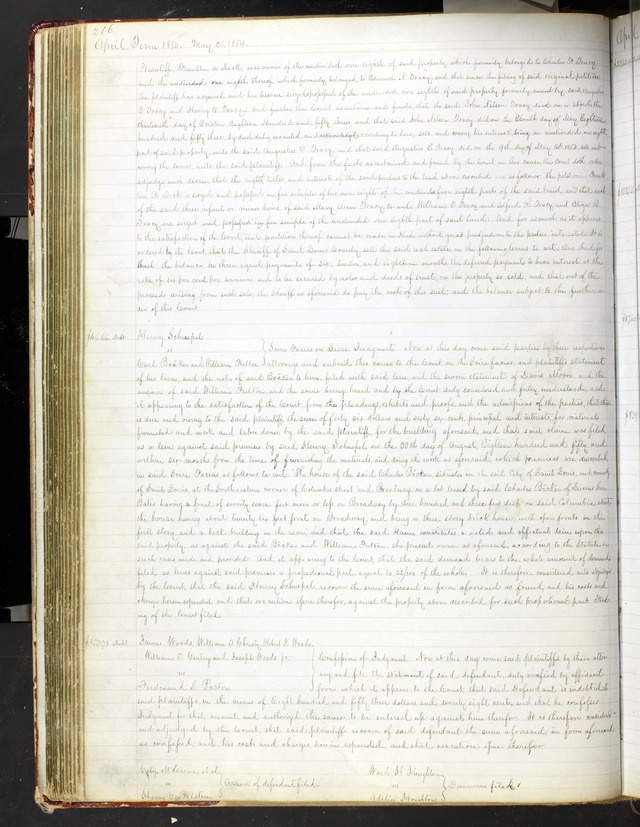 276
April Term 1854. May 25, 1854.
Plaintiff Franklin is also owner of the undivided one eighth of said property which formerly belonged to Charles F. Tracy
and the undivided one eighth thereof which formerly belonged to Edward N. Tracy and that since the filing of said original petition
the plaintiff has acquired and has become of the undivided two eighths of said property formerly owned by said Augustus
C. Tracy and Henry N. Tracy. And further the Court and finds, that the said John Nelson Tracy died on or about the
thirteenth day of October Eighteen Hundred and fifty three and that said John Nelson Tracy did on the Eleventh day of May Eighteen
hundred and fifty three, by deed duly executed and acknowledged according to law, sell and convey his interest being an undivided one eighth
part of said property unto the said Augustus C. Tracy, and that said Augustus C. Tracy, did on the 9th day of May AD 1853, sell and
convey the same unto the said plaintiff. And from the facts ascertained and found by the Court in this cause the Court doth order
adjudge and decree, that the rights titles and interests of the said parties to the land above described are as follows: the petitioner
is seized and possessed in fee simple of his own right of the undivided eighth parts of the said land, and that each
of the said three infant or minor heirs of said Mary Ann Tracy, to wit: William B. Tracy and Alfred B. Tracy and Eliza L.
Tracy are seized and possessed in fee simple of the undivided one eighth part of said lands. And for as much as it appears
to the satisfaction of the Court, that partition thereof cannot be made in kind without great prejudice to the parties interested. It is
ordered by the Court that the Sheriff of Saint Louis County sell the said real estate on the following terms to wit: One third for
Cash the balance in three equal payments of six, twelve and eighteen months the deferred payments to bear interest at the
rate of six per cent per annum and to be secured by notes and deeds of trust, on the property so sold and that out of the
proceeds arising from such sale, the Sheriff as aforesaid do pay the costs of this suit, and the balance subject to the further or-
der of this Court.
$46.66 Debt
Henry Schnepel
vs
Carl Bäcker and William Patton
Scire Facias on Lien. Judgment. Now at this day come said parties by their respective
attorneys and submit this cause to the Court on the Scire facias, and plaintiffs statement
of his lien, and the note of said Bäcker to him, filed with said lien and the sworn statement of David Moon and the
answer of said William Patton, and the same being heard and by the Court duly considered and fully understood, and
it appearing to the satisfaction of the Court, from the pleadings, exhibits and proofs, and the admissions of the parties, that there
is due and owing to the said plaintiff the sum of forty six dollars and sixty six cents, principal and interest, for materials
furnished and work and labor done, by the said plaintiff, for the building aforesaid, and that said claim was filed
as a lien against said premises by said Henry Schnepel, on the day of August, Eighteen hundred and fifty and
within six months from the time of furnishing the materials, and doing the work as aforesaid, which premises are described
in said Scire Facias as follows to wit: The house of the said Charles Bäcker, situated in the said City of Saint Louis, and county
of Saint Louis, at the Southeastern corner of Columbus street and Broadway, on a lot leased by said Charles Bäcker of
Bates having a front of twenty seven feet more or less on Broadway by One hundred and three feet deep on said Columbus street,
the house having about twenty six feet front on Broadway, and being a three story brick house, with open fronts in the
first story, and a back building in the rear, and that the said claim constitutes a valid and efficient lien upon the
said property, as against the said Bäcker and William Patton, the present owner as aforesaid, according to the Statutes in
such cases made and provided. And it appearing to the Court that the said demand bears to the whole amount of demands
filed as liens against said premises a proportional part, equal to of the whole. It is therefore considered and adjudged
by the Court, that the said Henry Schnepel recover the sum aforesaid in form aforesaid as found, and his costs and
charges herein expended, and that execution issue therefor, against the property above described for such proportional part. Find-
ing of the Court filed.
$853.78 Debt
James Woods, William D. Christy, Robert K. Woods,
William C. Gentry and Joseph Woods jr.
vs
Ferdinand S. Paston
Confession of Judgment. Now at this day come said plaintiffs by their attor-
ney and file the statement of said defendant, duly verified by affidavit
from which it appears to the Court that said Defendant is indebted to
said plaintiffs in the sum of Eight hundred and fifty three dollars and seventy eight cents, and that he confesses
Judgment for that amount and authorizes the same to be entered up against him therefor. It is therefore considered
and adjudged by the Court, that said plaintiffs recover of said defendant the sum aforesaid, in form aforesaid
so confessed, and their costs and charges herein expended and that execution issue therefor.
vs
Answer of defendant filed
Ward H. Houghton
vs
Adelia Houghton
Demurrer filed